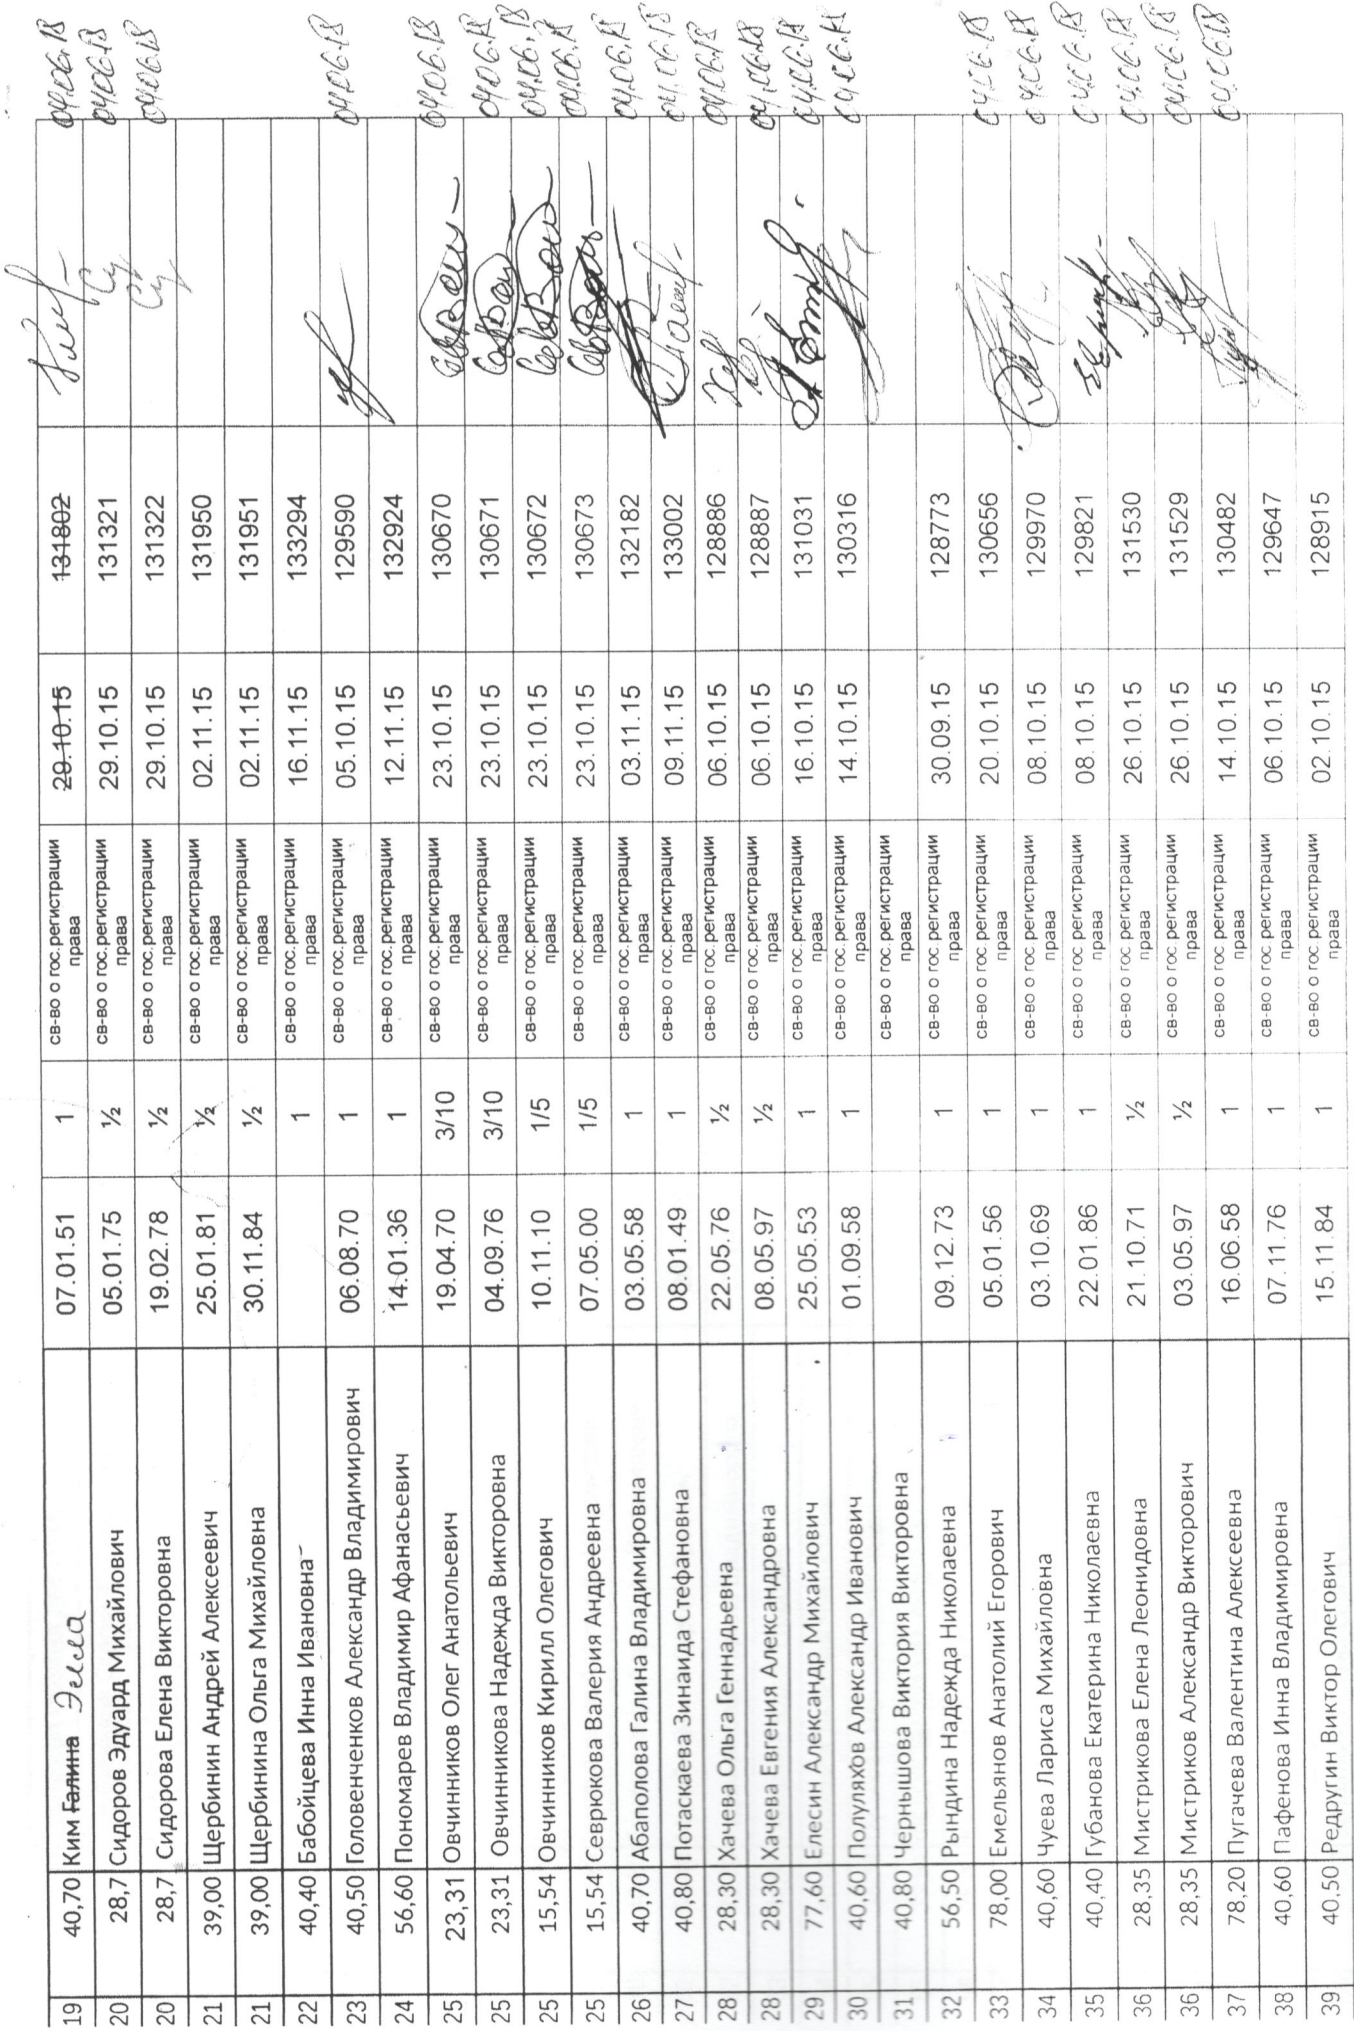 19 40,70 Ким Галина Элла 07.01.51 1 св-во о гос.регистрации права 29.10.15 131802 04.06.18
20 28,7 Сидоров Эдуард Михайлович 05.01.75 ½ св-во о гос.регистрации права 29.10.15 131321 04.06.18
20 28,7 Сидорова Елена Викторовна 19.02.78 ½ св-во о гос.регистрации права 29.10.15 131322 04.06.18
21 39,00 Щербинин Андрей Алексеевич 25.01.81 ½ св-во о гос.регистрации права 02.11.15 131950
21 39,00 Щербинина Ольга Михайловна 30.11.84 ½ св-во о гос.регистрации права 02.11.15 131951
22 40,40 Бабойцева Инна Ивановна 1 св-во о гос.регистрации права 16.11.15 133294
23 40,50 Головенченков Александр Владимирович 06.08.70 1 св-во о гос.регистрации права 05.10.15 129590 04.06.18
24 56,60 Пономарев Владимир Афанасьевич 14.01.36 1 св-во о гос.регистрации права 12.11.15 132924
25 23,31 Овчинников Олег Анатольевич 19.04.70 3/10 св-во о гос.регистрации права 23.10.15 130670 04.06.18
25 23,31 Овчинникова Надежда Викторовна 04.09.76 3/10 св-во о гос.регистрации права 23.10.15 130671 04.06.18
25 15,54 Овчинников Кирилл Олегович 10.11.10 1/5 св-во о гос.регистрации права 23.10.15 130672 04.06.18
25 15,54 Севрюкова Валерия Андреевна 07.05.00 1/5 св-во о гос.регистрации права 23.10.15 130673 04.06.18
26 40,70 Абаполова Галина Владимировна 03.05.58 1 св-во о гос.регистрации права 03.11.15 132182 04.06.18
27 40,80 Потаскаева Зинаида Стефановна 08.01.49 1 св-во о гос.регистрации права 09.11.15 133002 04.06.18
28 28,30 Хачева Ольга Геннадьевна 22.05.76 ½ св-во о гос.регистрации права 06.10.15 128886 04.06.18
28 28,30 Хачева Евгения Александровна 08.05.97 ½ св-во о гос.регистрации права 06.10.15 128887 04.06.18
29 77,60 Елесин Александр Михайлович 25.05.53 1 св-во о гос.регистрации права 16.10.15 131031 04.06.18
30 40,60 Полуляхов Александр Иванович 01.09.58 1 св-во о гос.регистрации права 14.10.15 130316 04.06.18
31 40,80 Чернышова Виктория Викторовна св-во о гос.регистрации права
32 56,50 Рындина Надежда Николаевна 09.12.73 1 св-во о гос.регистрации права 30.09.15 128773
33 78,00 Емельянов Анатолий Егорович 05.01.56 1 св-во о гос.регистрации права 20.10.15 130656 04.06.18
34 40,60 Чуева Лариса Михайловна 03.10.69 1 св-во о гос.регистрации права 08.10.15 129970 04.06.18
35 40,40 Губанова Екатерина Николаевна 22.01.86 1 св-во о гос.регистрации права 08.10.15 129821 04.06.18
36 28,35 Мистрикова Елена Леонидовна 21.10.71 ½ св-во о гос.регистрации права 26.10.15 131530 04.06.18
36 28,35 Мистриков Александр Викторович 03.05.97 ½ св-во о гос.регистрации права 26.10.15 131529 04.06.18
37 78,20 Пугачева Валентина Алексеевна 16.06.58 1 св-во о гос.регистрации права 14.10.15 130482 04.06.18
38 40,60 Пафенова Инна Владимировна 07.11.76 1 св-во о гос.регистрации права 06.10.15 129647
39 40,50 Редругин Виктор Олегович 15.11.84 1 св-во о гос.регистрации права 02.10.15 128915